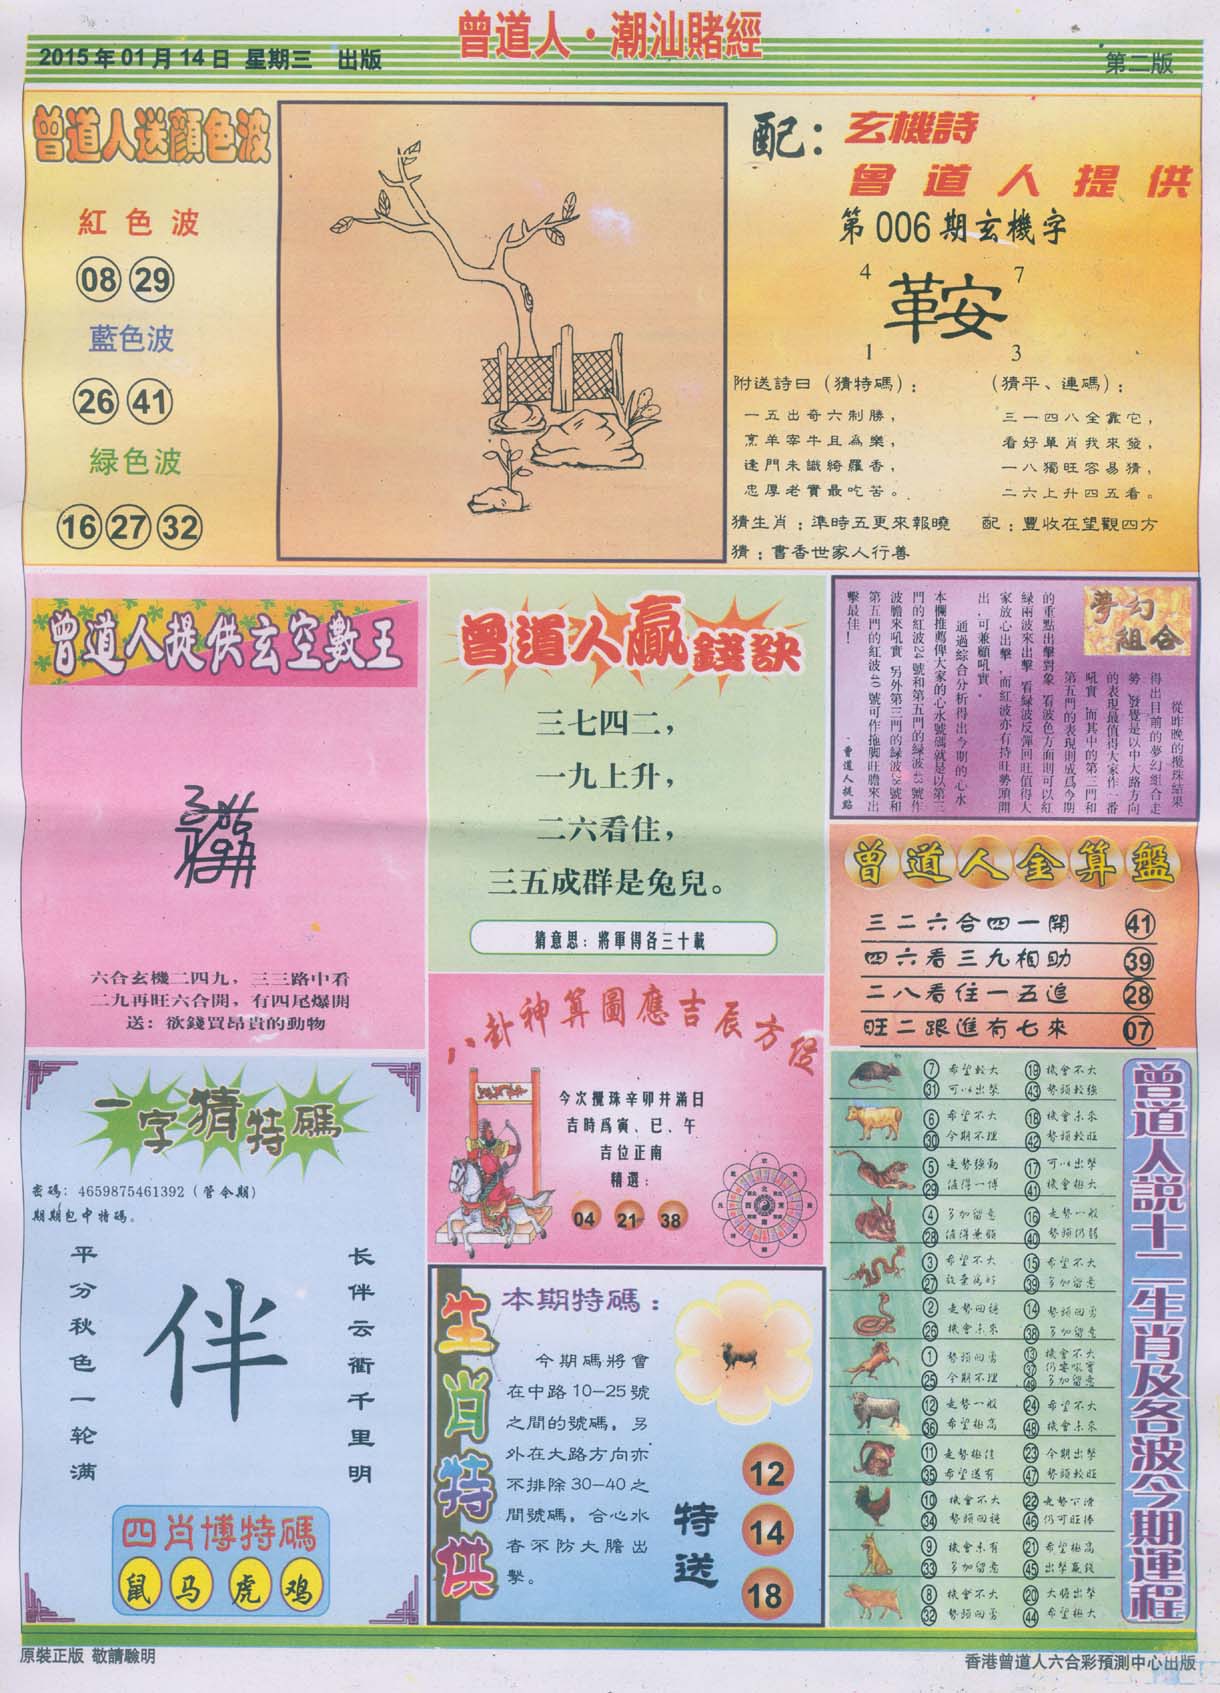 曾道人·潮汕賭經
2015年01月14日 星期三 出版
第二版
曾道人送顏色波
紅色波
08 29
藍色波
26 41
緑色波
16 27 32
配：玄機詩
曾道人提供
第006期玄機字
4 7
鞍
1 3
附送詩曰（猜特碼）：
一五出奇六制勝，
烹羊宰牛且為樂，
逢門未識綺羅香，
忠厚老實最吃苦。
（猜平、連碼）：
三一四八全靠它，
看好單肖我來發，
一八獨旺容易猜，
二六上升四五看。
猜生肖：準時五更來報曉 配：豐收在望觀四方
猜：書香世家人行善
曾道人提供玄空數王
六合玄機二四九，三三路中看
二九再旺六合開，有四尾爆開
送：欲錢買昂貴的動物
曾道人贏錢訣
三七四二，
一九上升，
二六看住，
三五成群是兔兒。
猜意思：將軍得各三十載
夢幻組合
從昨晚的攪珠結果
得出目前的夢幻組合走
勢，發覺是以中大路方向
的表現最值得大家作一番
吼實，而其中的第三門和
第五門的表現則成爲今期
的重點出擊對象，看波色方面則可以紅
緑兩波來出擊，看緑波反彈回旺值得大
家放心出擊，而紅波亦有持旺勢頭開
出，可兼顧吼實。
通過綜合分析得出今期的心水
本欄推薦俾大家的心水號碼就是以第三
門的紅波24號和第五門的緑波43號作
波膽來吼實，另外第三門的緑波28號和
第五門的紅波40號可作拖脚旺膽來出
擊最佳！
·曾道人提點
曾道人金算盤
三二六合四一開 41
四六看三九相助 39
二八看住一五追 28
旺二跟進有七來 07
八卦神算圖應吉辰方位
今次攪珠辛卯井滿日
吉時爲寅、巳、午
吉位正南
精選：
04 21 38
一字猜特碼
密碼：4659875461392（管令期）
期期包中特碼。
平分秋色一轮满
伴
长伴云衢千里明
四肖博特碼
鼠 马 虎 鸡
生肖特供
本期特碼：
今期碼將會
在中路10-25號
之間的號碼，另
外在大路方向亦
不排除30-40之
間號碼，合心水
者不防大膽出
擊。
特送
12
14
18
曾道人説十二生肖及各波今期運程
7 希望較大 19 機會不大
31 可以出擊 43 勢頭較強
6 希望不大 18 機會未來
30 今期不理 42 勢頭較旺
5 走勢強勁 17 可以出擊
29 值得一博 41 機會極大
4 多加留意 16 走勢一般
28 值得兼顧 40 勢頭仍弱
3 希望不大 15 希望不大
27 39 多加留意
2 走勢回穩 14 勢頭回勇
26 機會未來 38 多加留意
1 勢頭回勇 13 機會不大
37 仍要吼實
25 今期不理 49 多加留意
12 走勢一般 24 希望不大
36 希望極高 48 機會未來
11 走勢極佳 23 今期出擊
35 希望還有 47 勢頭較旺
10 機會不大 22 走勢下滑
34 勢頭回穩 46 仍可旺捧
9 機會未有 21 希望極高
33 多加留意 45 出擊贏錢
8 機會不大 20 大膽出擊
32 勢頭回勇 44 希望極大
原裝正版 敬請驗明
香港曾道人六合彩預測中心出版